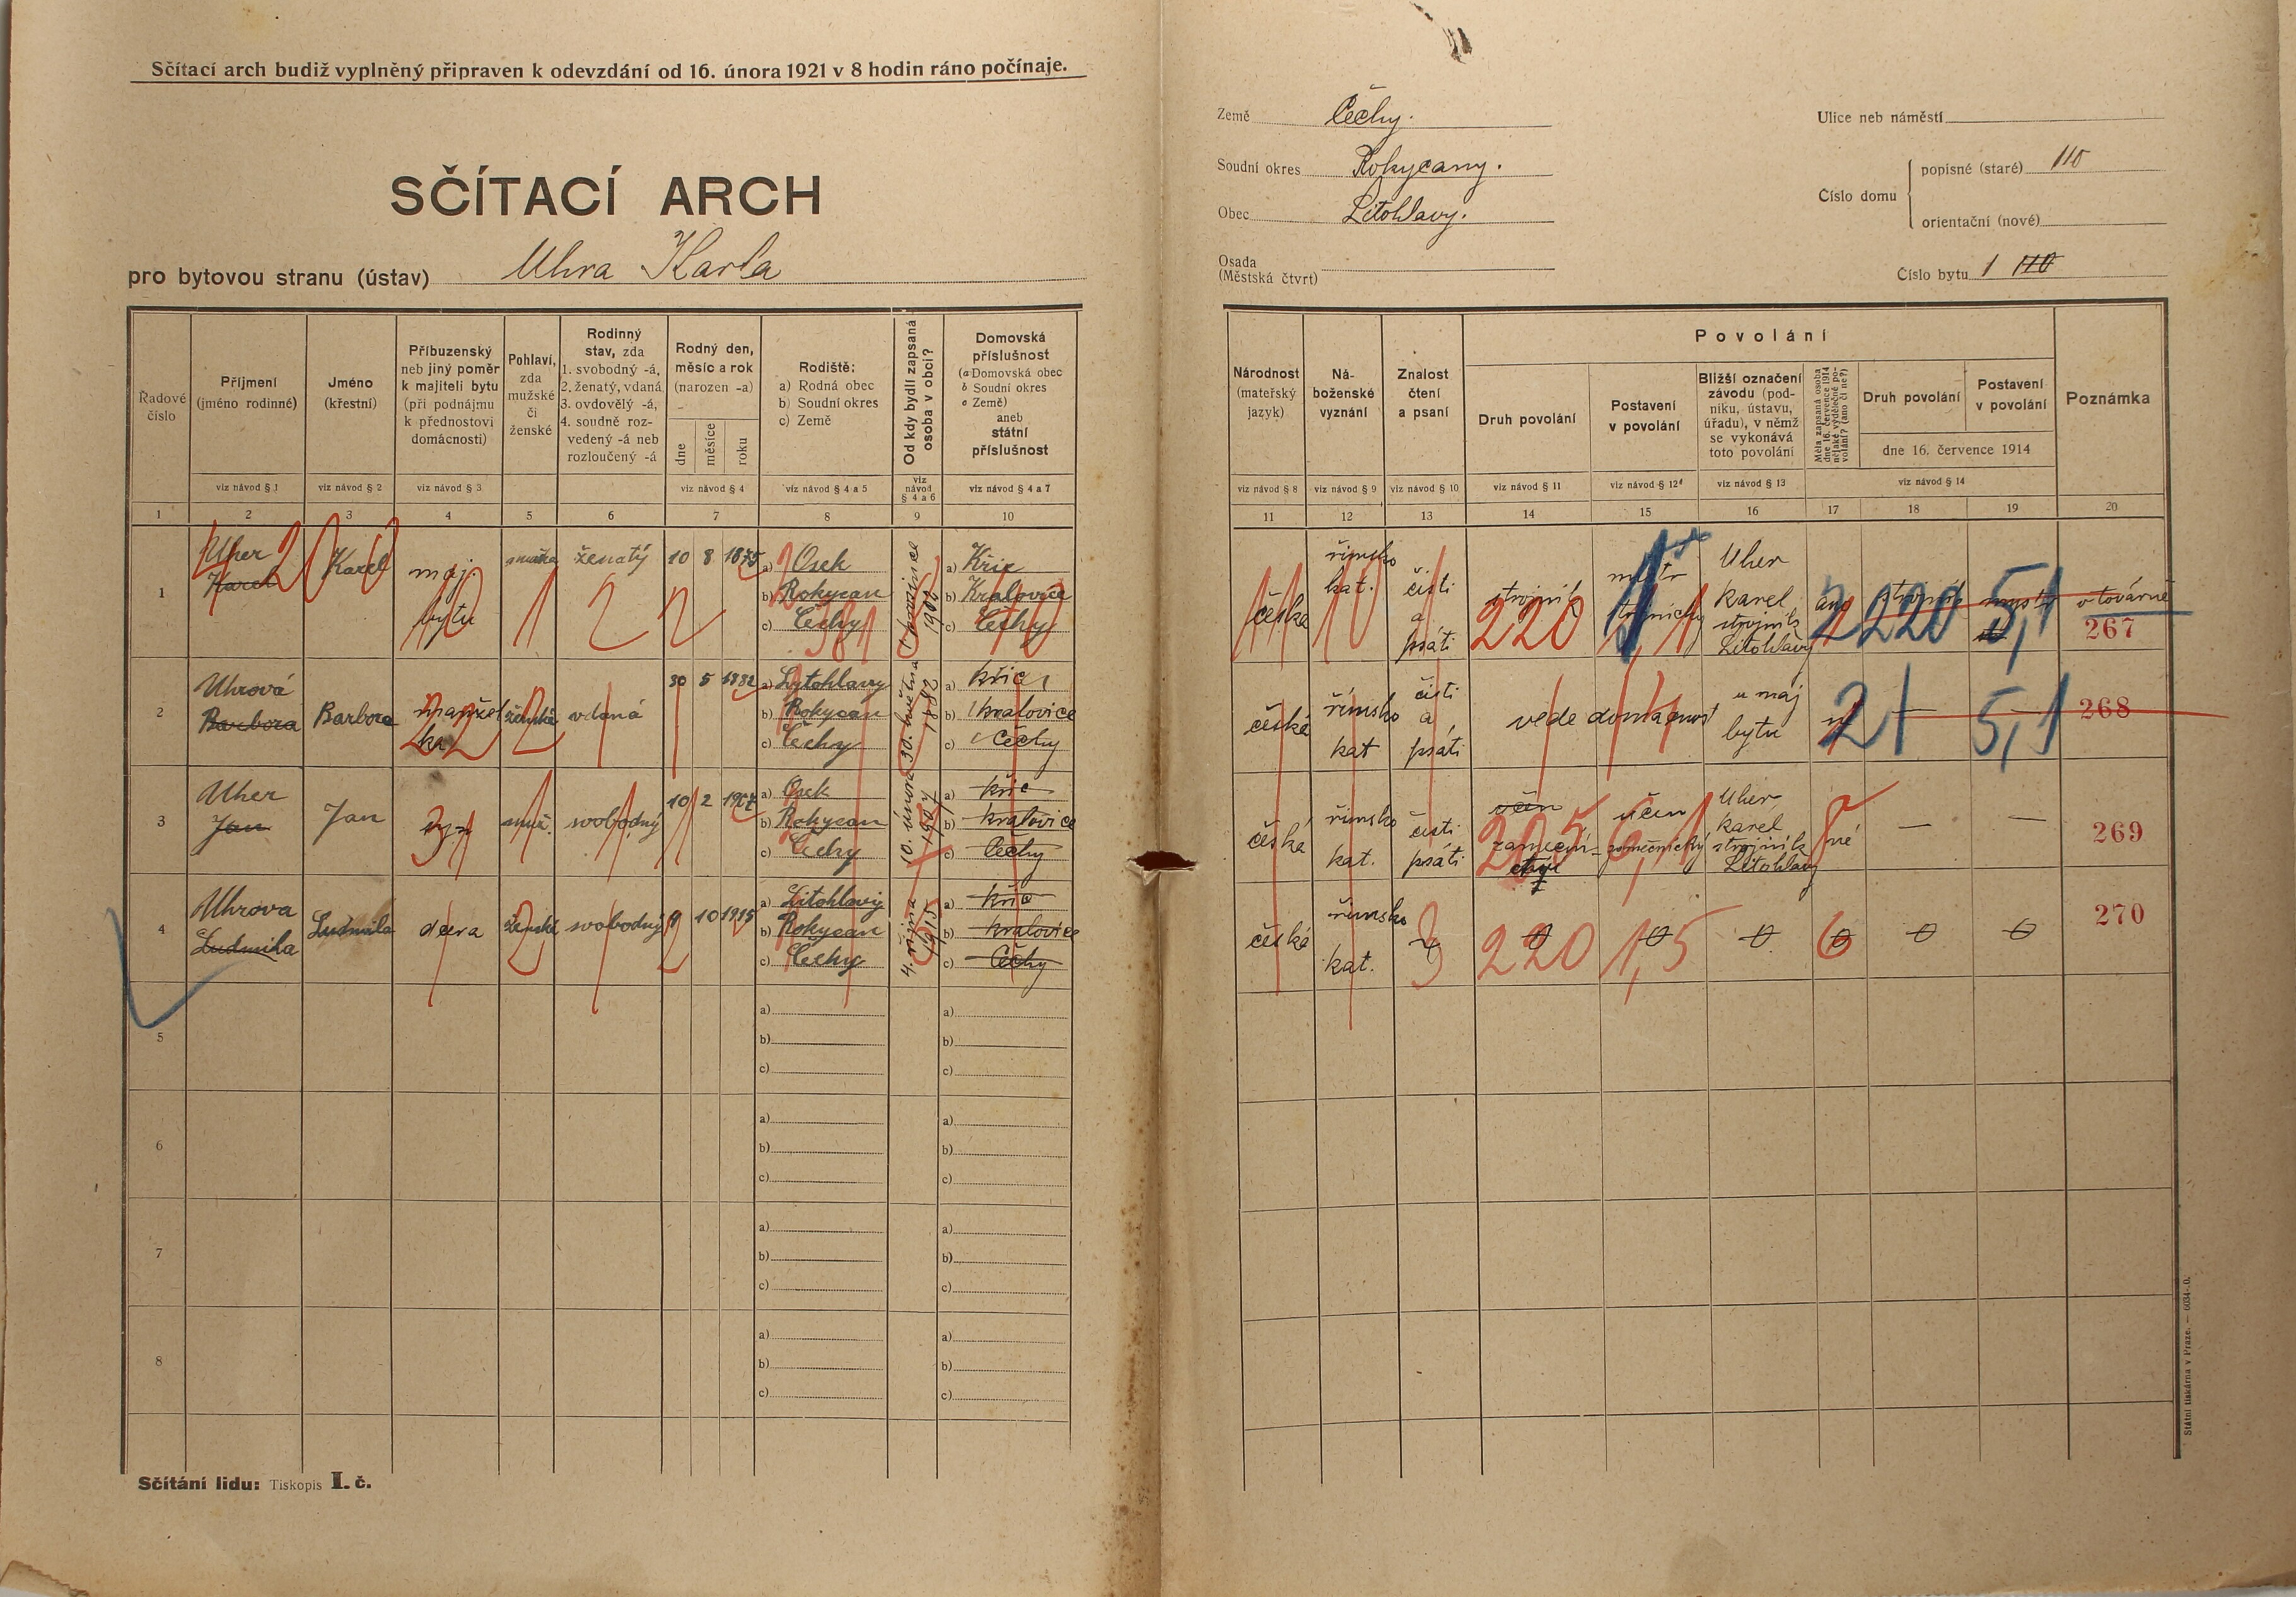 Sčítací arch budiž vyplněný připraven k odevzdání od 16. února 1921 v 8 hodin ráno počínaje.
SČÍTACÍ ARCH
pro bytovou stranu (ústav) Uhra Karla
Země Čechy.
Soudní okres Rokycany.
Obec Litohlavy.
Osada
(Městská čtvrť)
Ulice neb náměstí
Číslo domu
popisné (staré) 110
orientační (nové)
Číslo bytu 1 110
Řadové číslo
Příjmení (jméno rodinné)
viz návod § 1
Jméno (křestní)
viz návod § 2
Příbuzenský neb jiný poměr k majiteli bytu (při podnájmu k přednostovi domácnosti)
viz návod § 3
Pohlaví, zda mužské či ženské
Rodinný stav, zda
1. svobodný -á,
2. ženatý, vdaná
3. ovdovělý -á,
4. soudně roz-
vedený -á neb
rozloučený -á
Rodný den, měsíc a rok (narozen -a)
dne měsíce roku
viz návod § 4
Rodiště:
a) Rodná obec
b) Soudní okres
c) Země
viz návod § 4 a 5
Od kdy bydlí zapsaná osoba v obci?
viz návod § 4 a 6
Domovská příslušnost
(a Domovská obec
b Soudní okres
c Země)
aneb
státní
příslušnost
viz návod § 4 a 7
Národnost (mateřský jazyk)
viz návod § 8
Ná-
boženské
vyznání
viz návod § 9
Znalost čtení a psaní
viz návod § 10
Povolání
Druh povolání
viz návod § 11
Postavení v povolání
viz návod § 12
Bližší označení závodu (pod-
niku, ústavu,
úřadu), v němž
se vykonává
toto povolání
viz návod § 13
Měla zapsaná osoba dne 16. července 1914 nějaké výdělečné po-
volání? (ano či ne?)
Druh povolání
Postavení v povolání
dne 16. července 1914
viz návod § 14
Poznámka
1 2 3 4 5 6 7 8 9 10
11 12 13 14 15 16 17 18 19 20
1 Uher Karel Karel maj. bytu ženatý 10 8 1875
a) Osek
b) Rokycan
c) Čechy
1902
a) Křic
b) Kralovice
c) Čechy
česká římsko kat. čisti a psáti strojník mistr Uher Karel strojník Litohlavy ano v továrně
220 220 5,1
267
2 Uhrová Barbora Barbora manžel ka ženská vdaná 30 5 1882
a) Lytohlavy
b) Rokycan
c) Čechy
30. května 1882
a) Křic
b) Kralovice
c) Čechy
česká římsko kat čisti a psáti vede domacnost u maj bytu
21 5,1
268
3 Uher Jan Jan svobodný 10 2
a) Osek
b) Rokycan
c) Čechy
10. února 1907
a) Křic
b) Kralovice
c) Čechy
česká římsko kat. čisti psáti učen Uher Karel strojník Litohlavy né — —
269
4 Uhrova Ludmila Ludmila dcera ženská svobodný 10 1915
a) Litohlavy
b) Rokycan
c) Čechy
4. října 1915
a) Křic
b) Kralovice
c) Čechy
česká římsko kat. 220 1,5 0 0 0 0
270
5
a)
b)
c)
a)
b)
c)
6
a)
b)
c)
a)
b)
c)
7
a)
b)
c)
a)
b)
c)
8
a)
b)
c)
a)
b)
c)
Sčítání lidu: Tiskopis I. č.
Státní tiskárna v Praze. — 6034-.0.